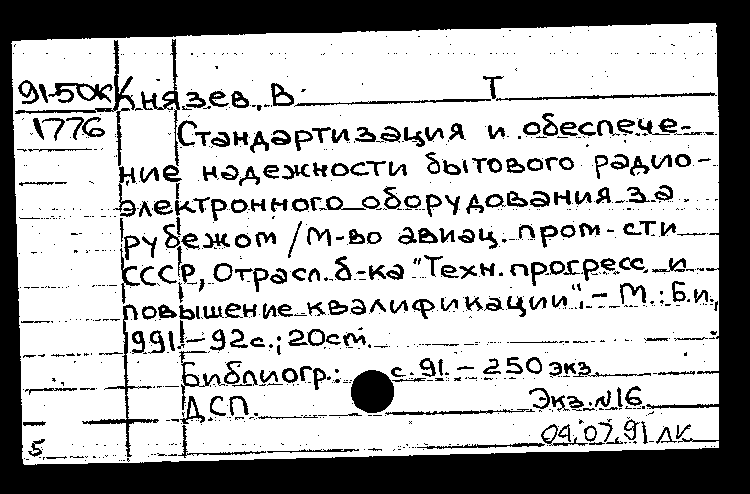 91-50К Князев, В. Т
1776 Стандартизация и обеспече-
ние надежности бытового радио-
электронного оборудования за
рубежом / М-во авиац. пром-сти
СССР, Отрасл. б-ка "Техн. прогресс и
повышение квалификации". - М.: Б.и.,
1991. - 92с.; 20см.
Библиогр.: с. 91. - 250 экз.
ДСП. Экз. №16.
5 04.07.91 ЛК